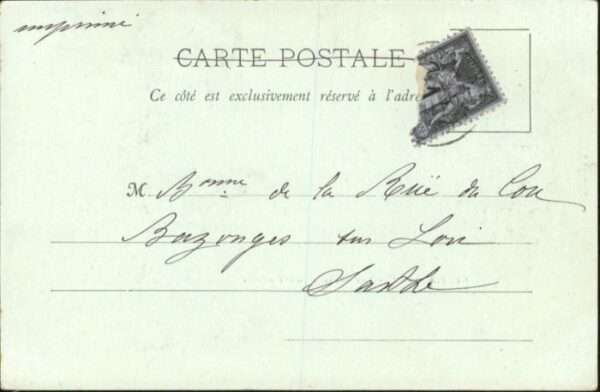 imprimé
CARTE POSTALE
Ce côté est exclusivement réservé à l'adre
M Bonne de la Ruë du Can
Bazouges sur Loir
Sarthe